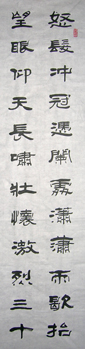 怒髮冲冠憑闌處瀟瀟雨歇抬
望眼仰天長嘯壯懷激烈三十